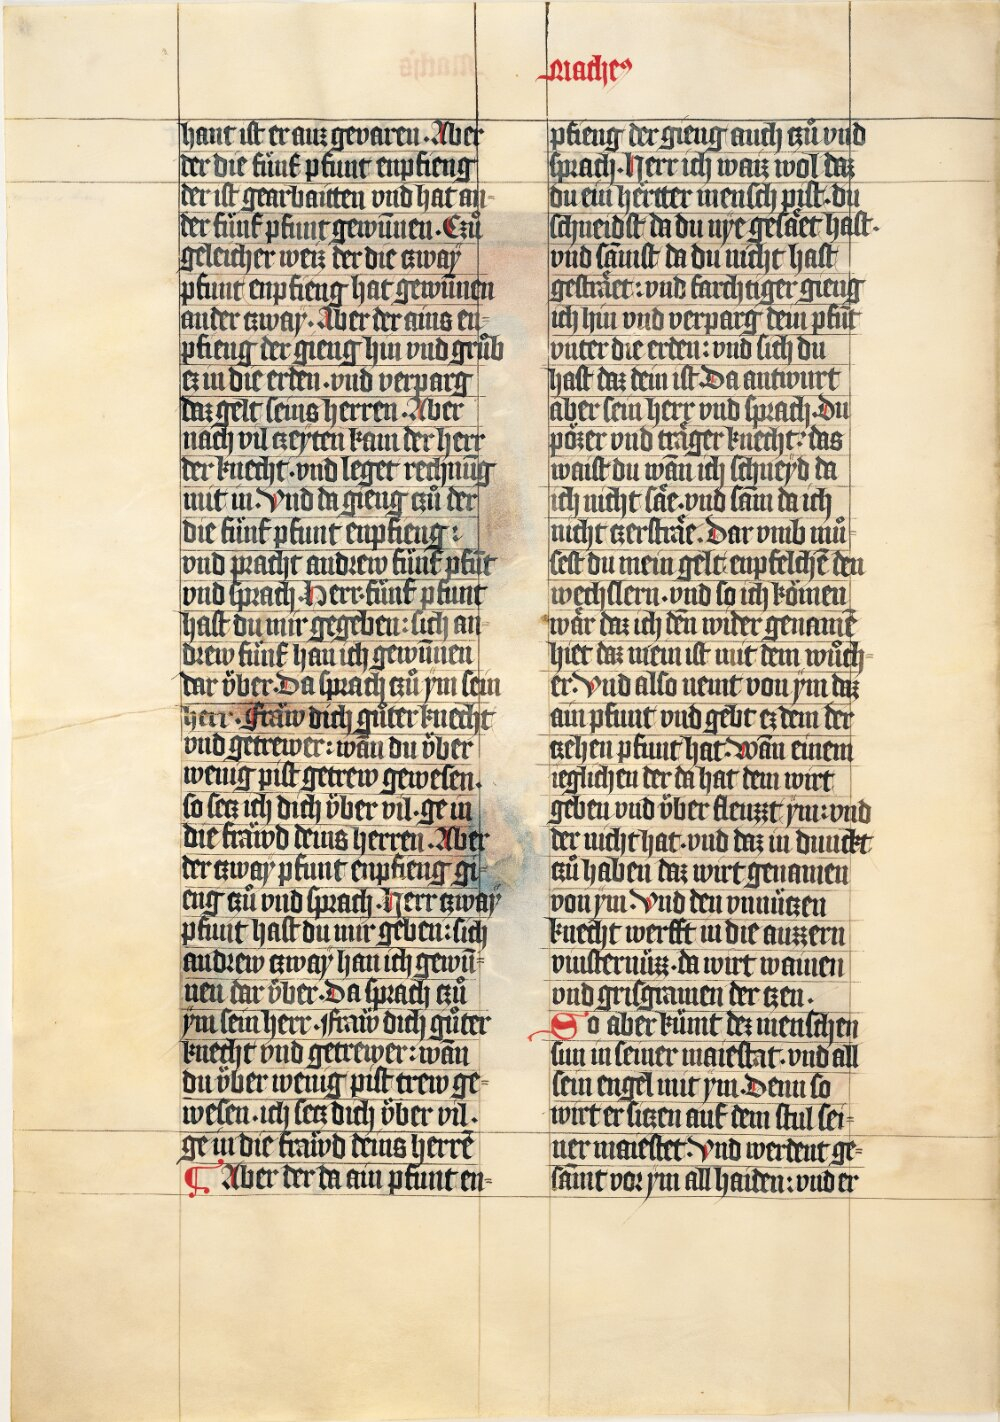 Matheꝰ
hant ist er auz gevaren. Aber
der die fünf pfunt enpfieng
der ist gearbaitten vnd hat an-
der fünf pfunt gewūnen. Czů
geleicher weiz der die czway
pfunt enpfieng hat gewūnen
ander czway. Aber der ains en-
pfieng der gieng hin vnd grůb
ez in die erden. vnd verparg
daz gelt seins herren. Aber
nach vil czeyten kam der herr
der knecht. vnd leget rechnūg
mit in. Vnd da gieng czů der
die fünf pfunt enpfieng:
vnd pracht andrew fünf pfūt
vnd sprach. Herr fünf pfunt
hast du mir gegeben: sich an-
drew fünf han ich gewūnen
dar über. Da sprach czů ym sein
herr. Fräw dich gůter knecht
vnd getrewer: wān du über
wenig pist getrew gewesen.
so secz ich dich über vil. ge in
die fräwd deins herren. Aber
der czway pfunt enpfieng gi-
eng czů vnd sprach. Herr czway
pfunt hast du mir geben: sich
andrew czway han ich gewū-
nen dar über. Da sprach czů
ym sein herr. Fräw dich gůter
knecht vnd getrewer: wān
du über wenig pist trew ge-
wesen. ich secz dich über vil.
ge in die fräwd deins herrē
¶ Aber der da ain pfunt en-
pfieng der gieng auch czů vnd
sprach. Herr ich waiz wol daz
du ein hertter mensch pist. du
schneidst da du nye gesäet hast.
vnd sāmst da du nicht hast
gesträet: vnd farchtiger gieng
ich hin vnd verparg dein pfūt
vnter die erden: vnd sich du
hast daz dein ist. Da antwurt
aber sein herr vnd sprach. Du
pözer vnd träger knecht: das
waist du wān ich schneyd da
ich nicht säe. vnd sām da ich
nicht czersträe. Dar vmb mů-
sest du mein gelt enpfelchē den
wechslern. vnd so ich kömen
wär daz ich dēn wider genamē
hiet daz mein ist mit dem wůch-
er. Vnd also nemt von ym daz
ain pfunt vnd gebt ez dem der
czehen pfunt hat. Wān einem
ieglichen der da hat dem wirt
geben vnd über fleuzzt ym: vnd
der nicht hat. vnd daz in dunckt
czů haben daz wirt genamen
von ym. Vnd den vnnüczen
knecht werfft in die auzzern
vinsternüzz. da wirt wainen
vnd grisgramen der czen.
So aber kümt dez menschen
sun in seiner maiestat. vnd all
sein engel mit ym. Denn so
wirt er siczen auf dem stul sei-
ner maiestet. Vnd werdent ge-
sāmt vor ym all haiden: vnd er